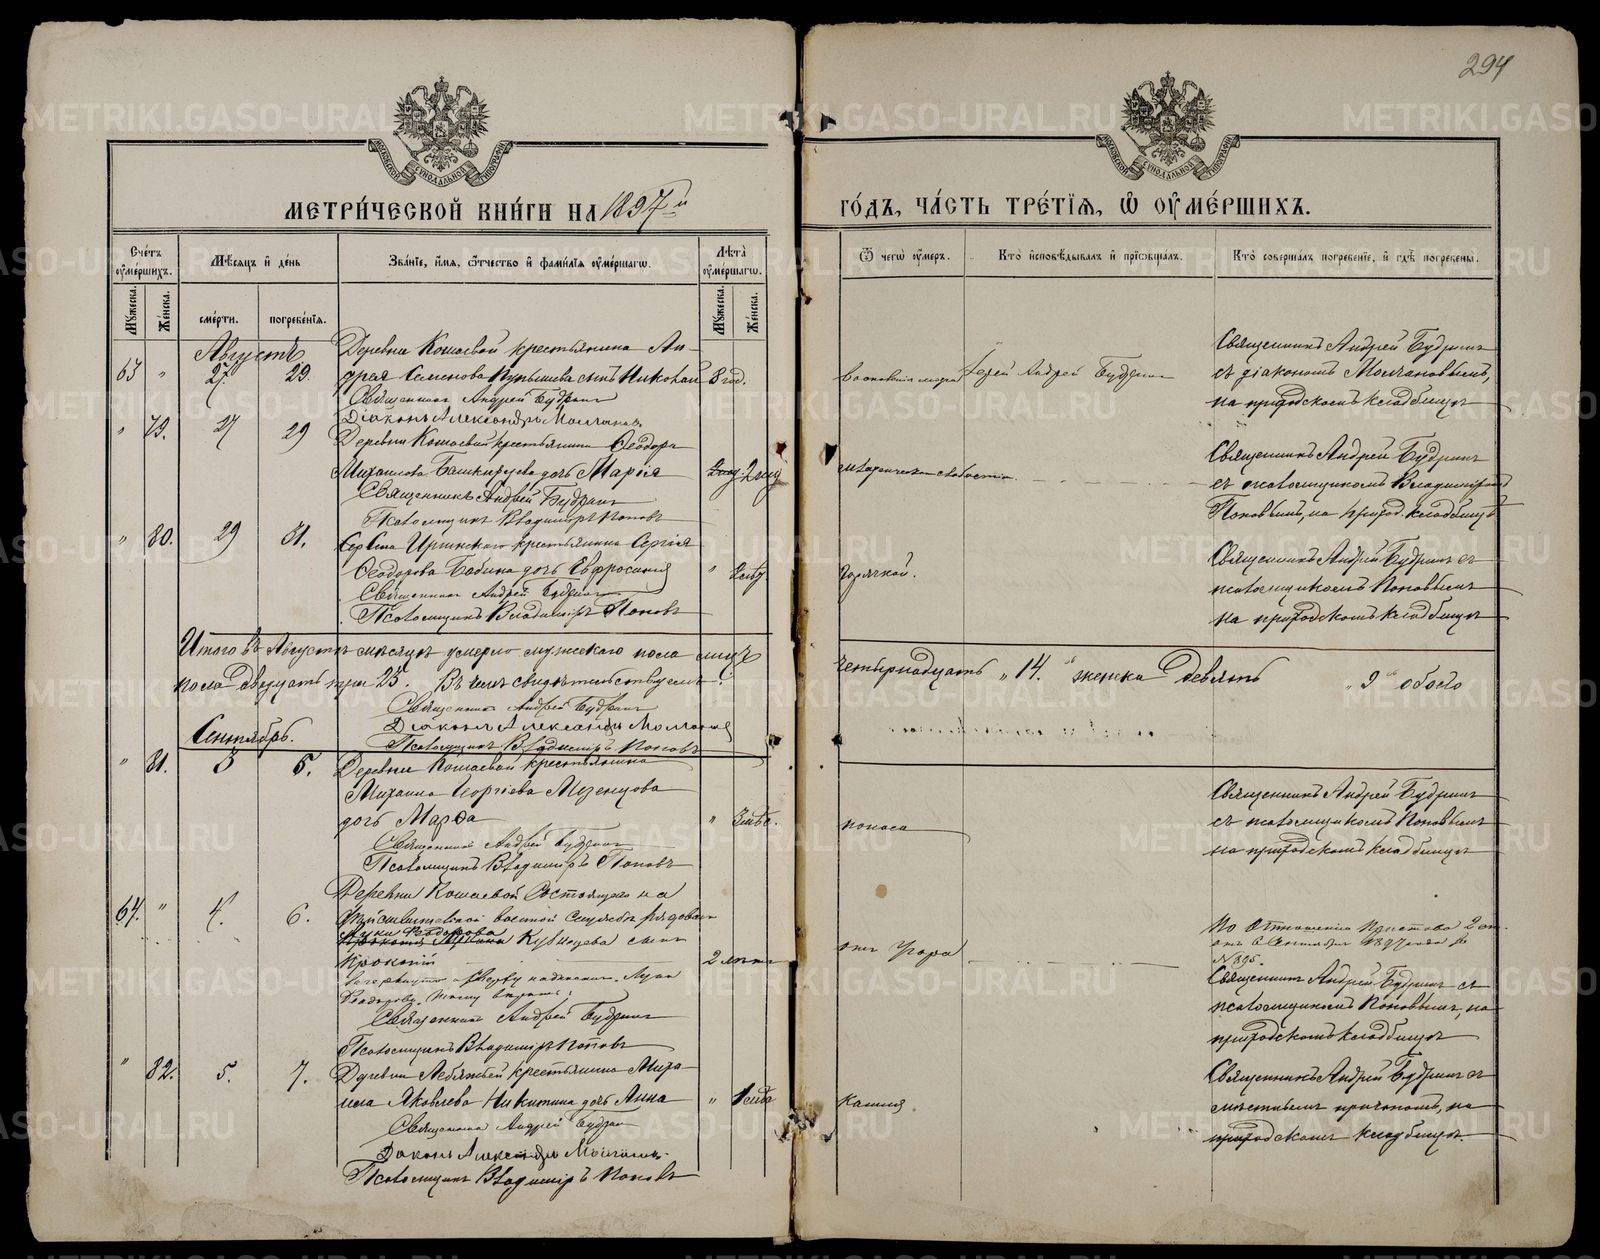 294
МЕТРИ́ЧЕСКОЙ КНИ́ГИ НА 1897й
ГО́ДЪ, ЧА́СТЬ ТРЕ́ТІЯ, Ѡ ОУМЕ́РШИХЪ.
Сче́тъ оуме́ршихъ.
Мѣ́сяцъ и де́нь
Зва́ніе, и́мя, ѻ́тчество и фами́лія оуме́ршагѡ.
Лѣта̀ оуме́ршагѡ.
Ѿ чегѡ̀ оу́меръ.
Кто̀ и҆сповѣ́дывалъ и҆ прїѡбща́лъ.
Кто̀ соверша́лъ погребе́ніе, и҆ гдѣ̀ погребены̀.
Му́жеска.
Же́нска.
сме́рти.
погребе́нія.
Му́жеска.
Же́нска.
Августъ
63 " 27. 29.
Деревни Кошаевой крестьянина Ан-
дрея Семенова сынъ Николай 8 год.
Священникъ Андрей Будринъ
Діаконъ Александръ Молчановъ
Іерей Андрей Будринъ
Священникъ Андрей Будринъ
съ діакономъ Молчановымъ,
на приходскомъ кладбищѣ
" 79. 27 29
Деревни Кошаевой крестьянина Ѳеодора
Михаилова Башкирцева дочь Марія
Священникъ Андрей Будринъ
Псаломщикъ Владиміръ Поповъ
Священникъ Андрей Будринъ
съ псаломщикомъ Владиміромъ
Поповымъ, на приход. кладбищѣ
" 80. 29 31.
крестьянина Сергія
Ѳеодорова Бабина дочь Евфросинія
Священникъ Андрей Будринъ
Псаломщикъ Владиміръ Поповъ
горячкой.
Священникъ Андрей Будринъ съ
псаломщикомъ Поповымъ
на приходскомъ кладбищѣ
Итого въ Августѣ мѣсяцѣ умерло мужескаго пола
четырнадцать "14." женска девять "9" обоего
пола двадцать три 23. Въ чемъ свидѣтельствуемъ:
Священникъ Андрей Будринъ
Діаконъ Александръ Молчановъ
Псаломщикъ Владиміръ Поповъ
Сентябрь.
" 81. 3 5.
Деревни Кошаевой крестьянина
Михаила Георгіева Мезенцова
дочь Марѳа
Священникъ Андрей Будринъ
Псаломщикъ Владиміръ Поповъ
поноса
Священникъ Андрей Будринъ
съ псаломщикомъ Поповымъ
на приходскомъ кладбищѣ
64. " 4. 6.
Деревни Кошаевой состоящаго на
дѣйствительной военной службѣ рядоваго
Луки Ѳеодорова
Кузнецова сынъ
Прокопій 2 лѣтъ
Священникъ Андрей Будринъ
Псаломщикъ Владиміръ Поповъ
отъ угара
По отношенію Пристава 2 ст.
отъ 6 Сентября 1897 года за
№ 395.
Священникъ Андрей Будринъ съ
псаломщикомъ Поповымъ, на
приходскомъ кладбищѣ
" 82. 5. 7.
Деревни Лебяжьей крестьянина Миха-
ила Яковлева Никитина дочь Анна
Священникъ Андрей Будринъ
Діаконъ Александръ Молчановъ
Псаломщикъ Владиміръ Поповъ
кашля
Священникъ Андрей Будринъ съ
мѣстнымъ причтомъ, на
приходскомъ кладбищѣ.
METRIKI.GASO-URAL.RU